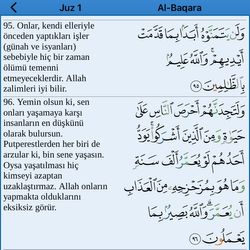 Juz 1
Al-Baqara
95. Onlar, kendi elleriyle
önceden yaptıkları işler
(günah ve isyanları)
sebebiyle hiç bir zaman
ölümü temenni
etmeyeceklerdir. Allah
zalimleri iyi bilir.
وَلَن يَتَمَنَّوْهُ أَبَدًۢا بِمَا قَدَّمَتْ
أَيْدِيهِمْ ۗ وَٱللَّهُ عَلِيمٌۢ
بِٱلظَّٰلِمِينَ ٩٥
96. Yemin olsun ki, sen
onları yaşamaya karşı
insanların en düşkünü
olarak bulursun.
Putperestlerden her biri de
arzular ki, bin sene yaşasın.
Oysa yaşatılması hiç
kimseyi azaptan
uzaklaştırmaz. Allah onların
yapmakta olduklarını
eksiksiz görür.
وَلَتَجِدَنَّهُمْ أَحْرَصَ ٱلنَّاسِ عَلَىٰ
حَيَوٰةٍ وَمِنَ ٱلَّذِينَ أَشْرَكُوا۟ ۚ يَوَدُّ
أَحَدُهُمْ لَوْ يُعَمَّرُ أَلْفَ سَنَةٍ
وَمَا هُوَ بِمُزَحْزِحِهِۦ مِنَ ٱلْعَذَابِ
أَن يُعَمَّرَ ۗ وَٱللَّهُ بَصِيرٌۢ بِمَا
يَعْمَلُونَ ٩٦